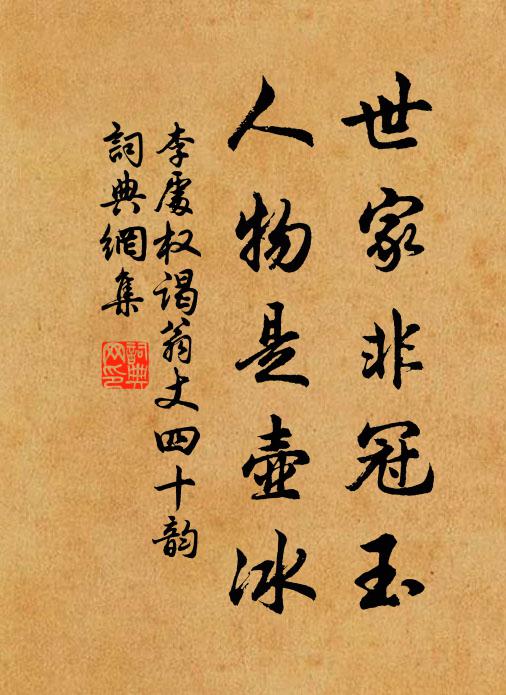 世家非冠玉
人物是壶冰
李处权谒翁丈四十韵
词典网集
詞典網印